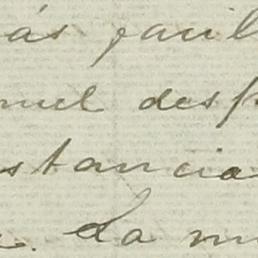 ás facil
nuel desp
stancia
a. La mu